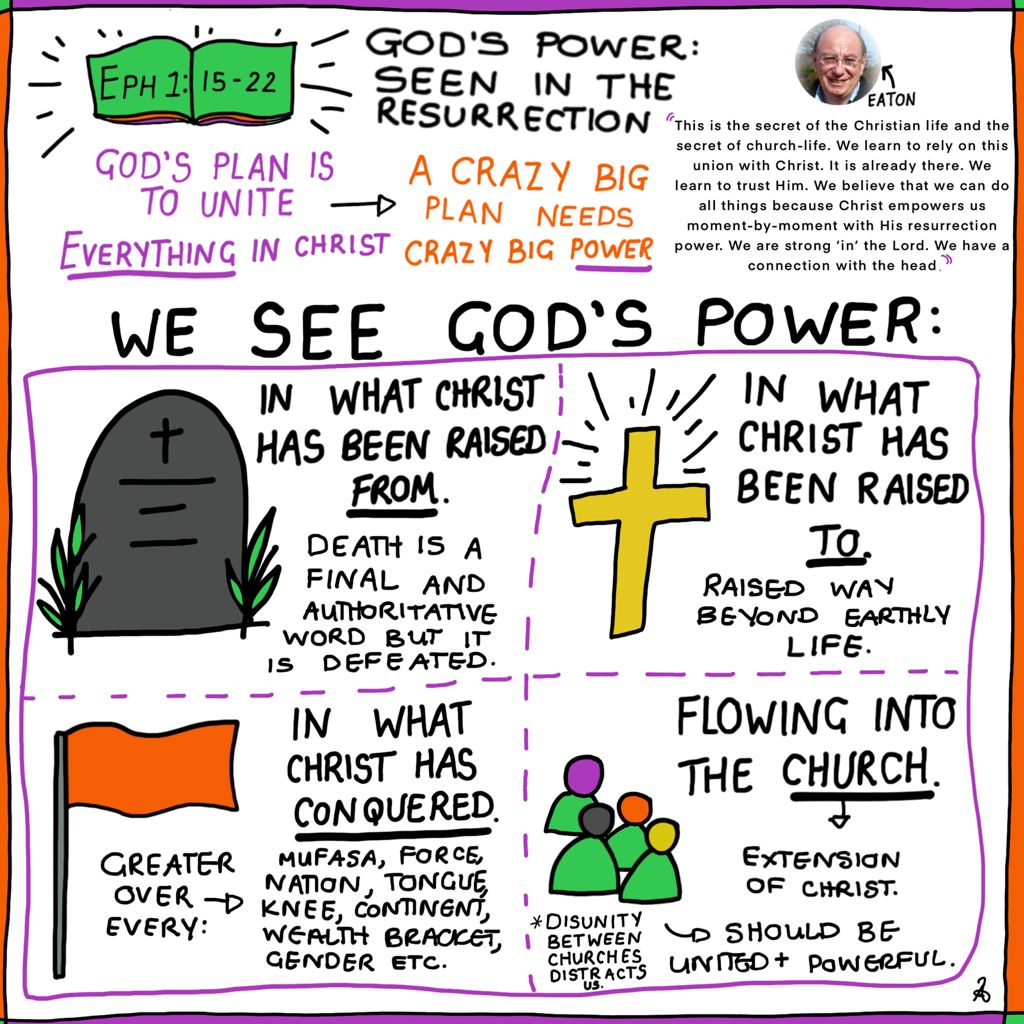 EPH 1: 15-22
GOD'S POWER:
SEEN IN THE
RESURRECTION
EATON
"This is the secret of the Christian life and the
secret of church-life. We learn to rely on this
union with Christ. It is already there. We
learn to trust Him. We believe that we can do
all things because Christ empowers us
moment-by-moment with His resurrection
power. We are strong 'in' the Lord. We have a
connection with the head."
GOD'S PLAN IS
TO UNITE
EVERYTHING IN CHRIST
A CRAZY BIG
PLAN NEEDS
CRAZY BIG POWER
WE SEE GOD'S POWER:
IN WHAT CHRIST
HAS BEEN RAISED
FROM.
DEATH IS A
FINAL AND
AUTHORITATIVE
WORD BUT IT
IS DEFEATED.
IN WHAT
CHRIST HAS
BEEN RAISED
TO.
RAISED WAY
BEYOND EARTHLY
LIFE.
IN WHAT
CHRIST HAS
CONQUERED.
GREATER
OVER
EVERY:
MUFASA, FORCE,
NATION, TONGUE,
KNEE, CONTINENT,
WEALTH BRACKET,
GENDER ETC.
FLOWING INTO
THE CHURCH.
EXTENSION
OF CHRIST.
SHOULD BE
UNITED + POWERFUL.
*DISUNITY
BETWEEN
CHURCHES
DISTRACTS
US.